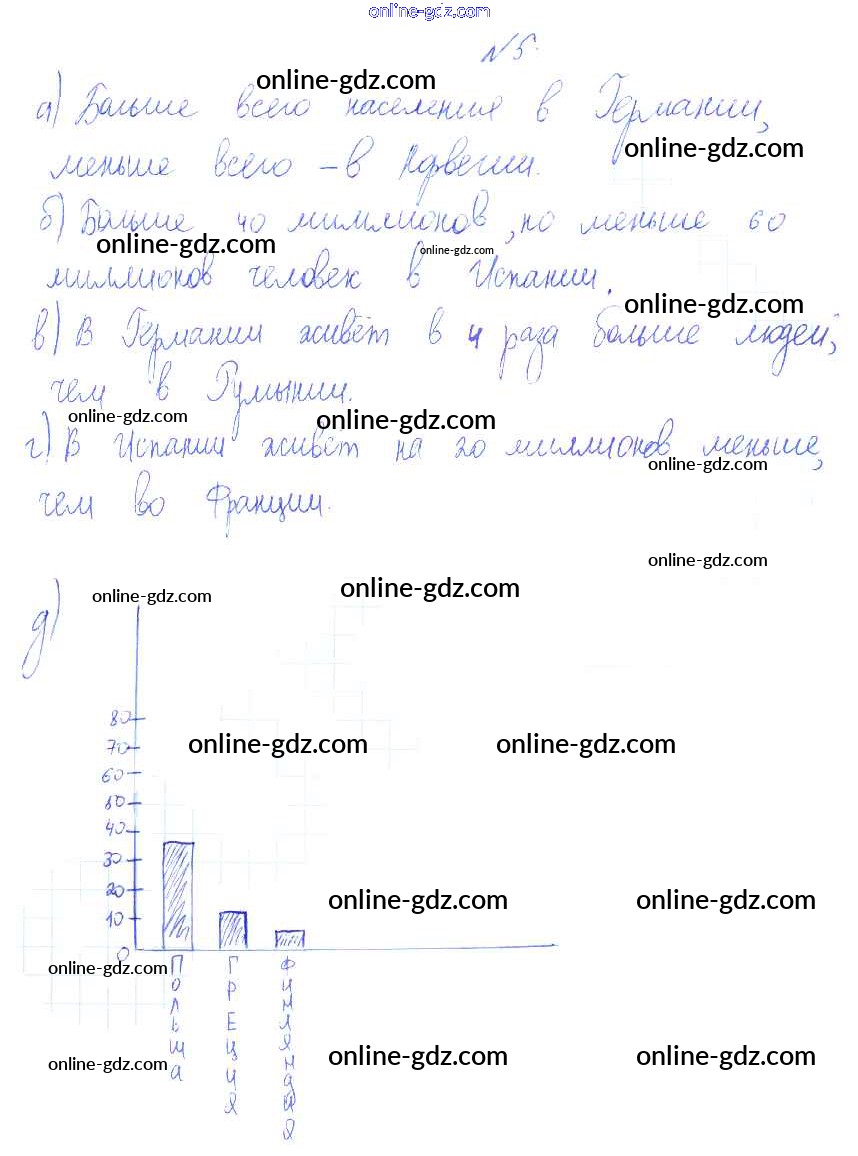 online-gdz.com
№5.
online-gdz.com
а) Больше всего населения в Германии,
online-gdz.com
меньше всего – в Норвегии.
б) Больше 40 миллионов, но меньше 60
online-gdz.com online-gdz.com
миллионов человек в Испании.
online-gdz.com
в) В Германии живёт в 4 раза больше людей,
чем в Румынии.
online-gdz.com online-gdz.com
г) В Испании живёт на 20 миллионов меньше,
online-gdz.com
чем во Франции.
online-gdz.com
online-gdz.com online-gdz.com
д)
80
online-gdz.com online-gdz.com
70
60
50
40
30
20
online-gdz.com online-gdz.com
10
0
online-gdz.com
ПОЛЬША
ГРЕЦИЯ
Финляндия
online-gdz.com online-gdz.com online-gdz.com